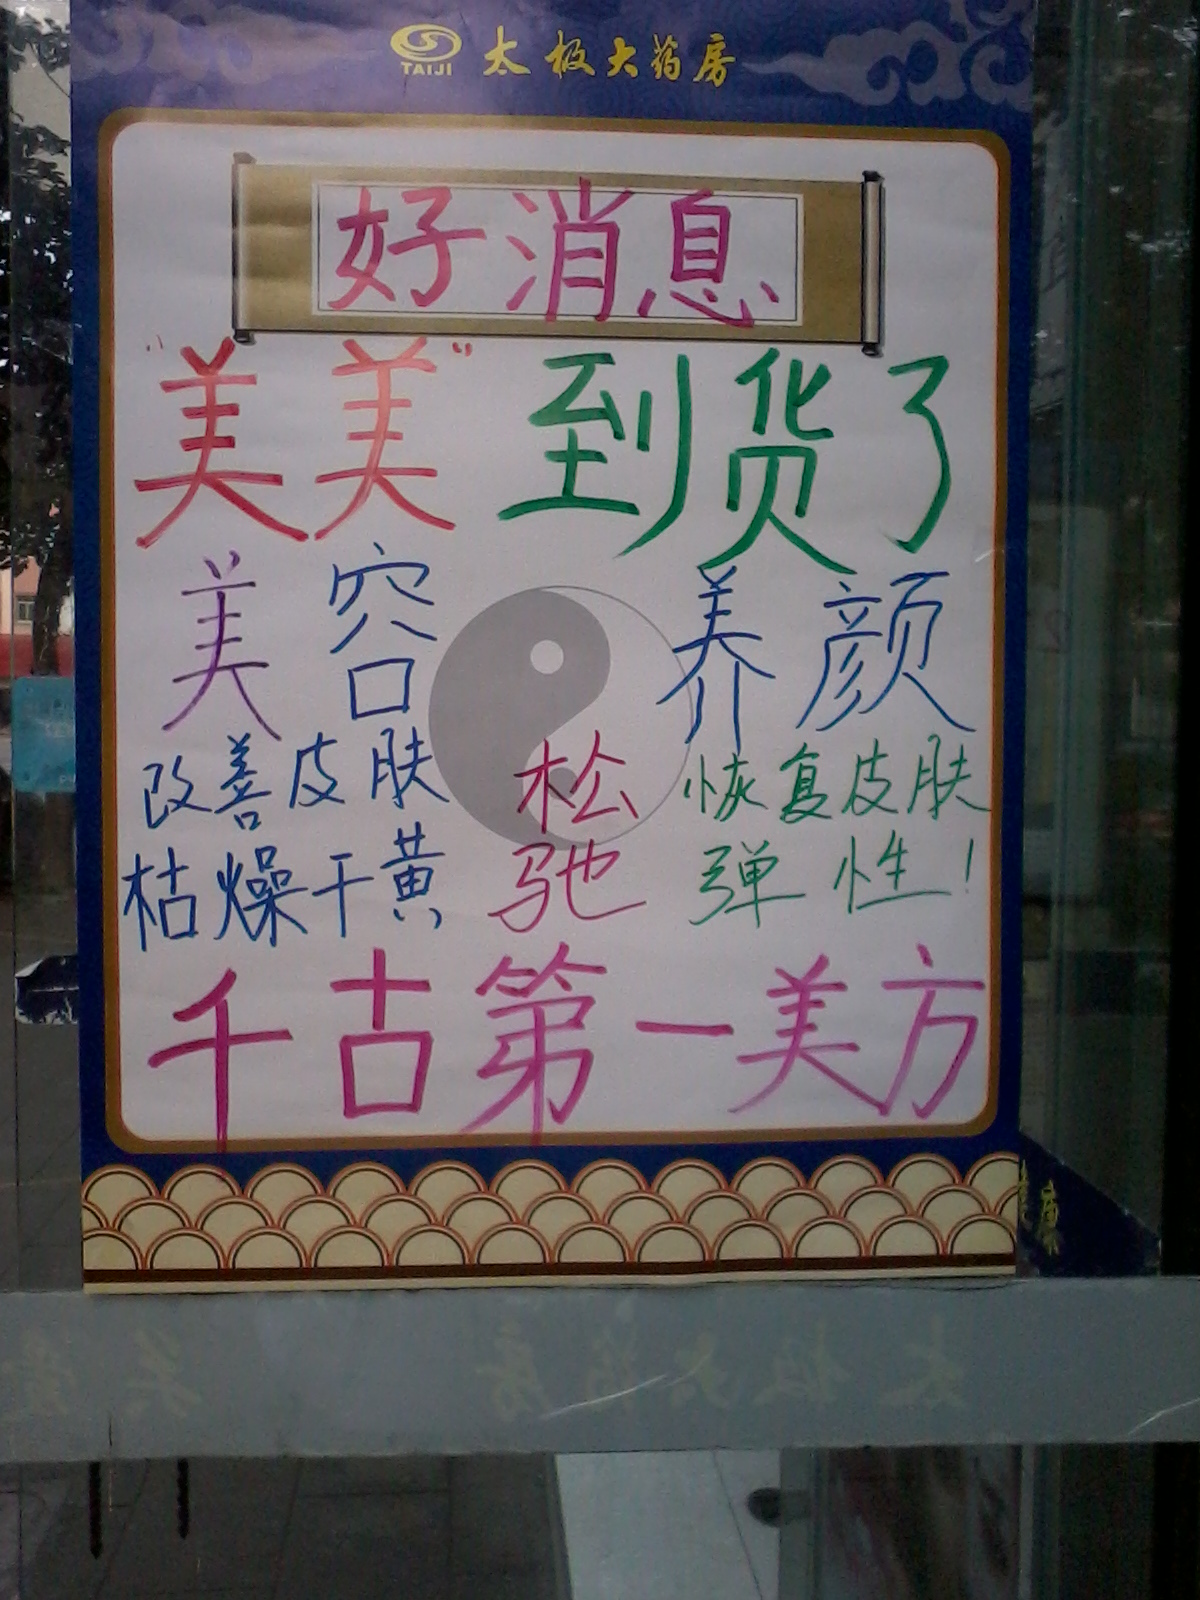 TAIJI 太极大药房
好消息
“美美”到货了
美容 养颜
改善皮肤 松 恢复皮肤
枯燥干黄 驰 弹性！
千古第一美方
太极大药房